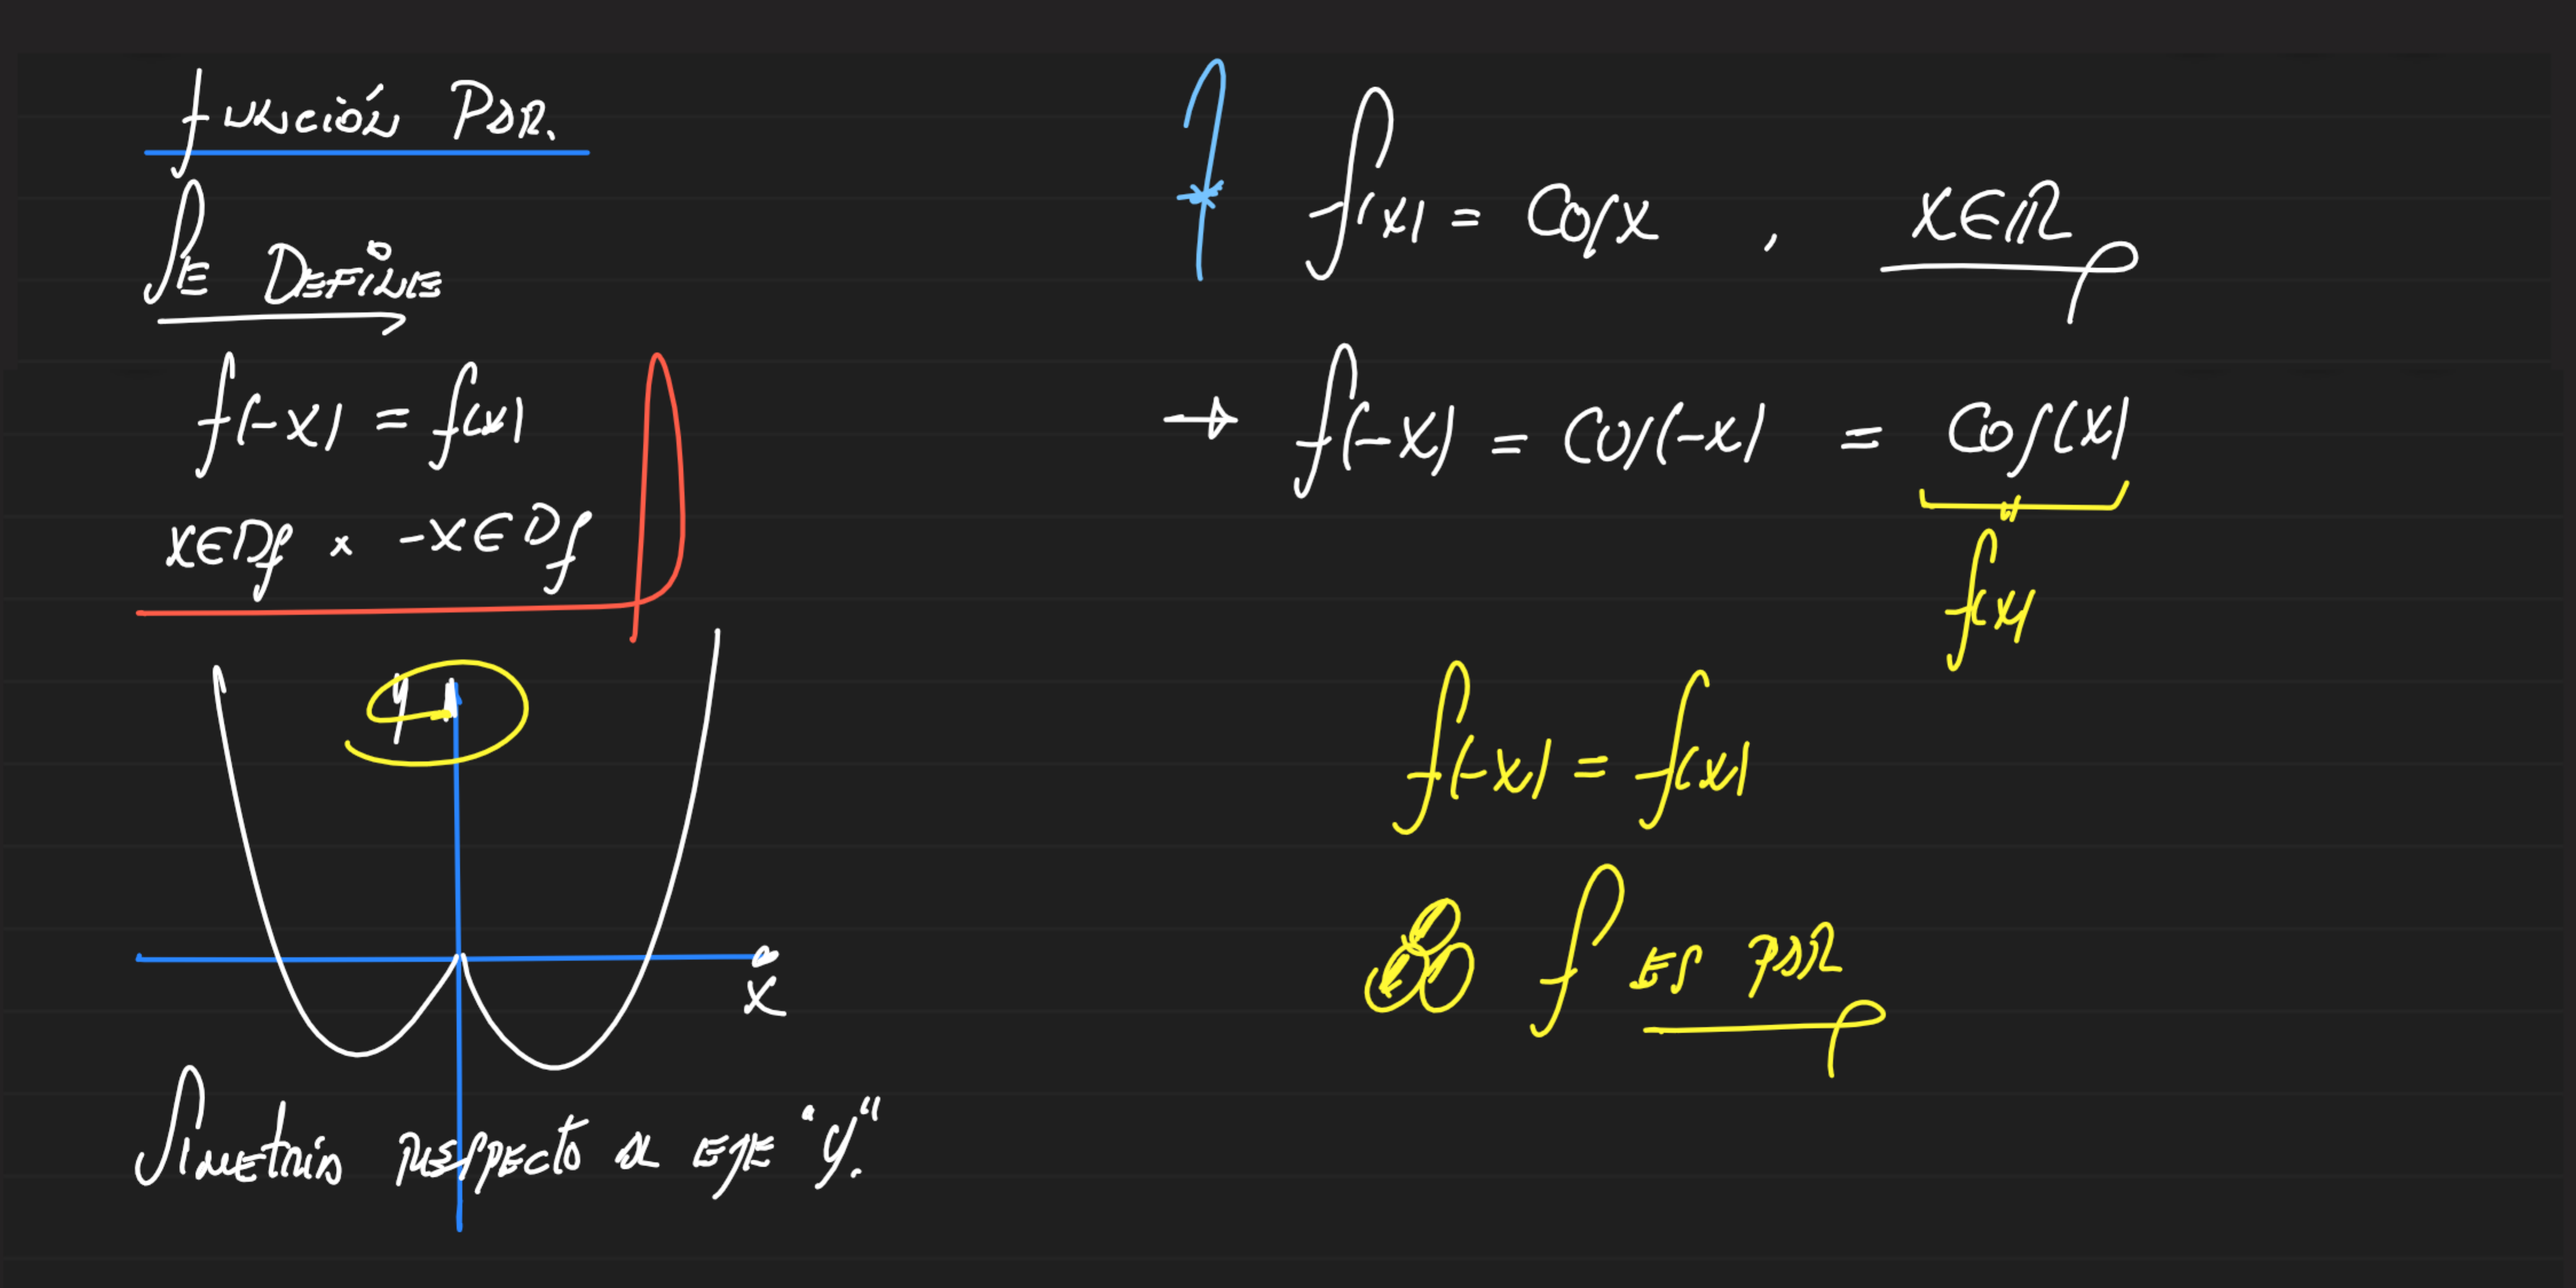 Función Par.
Se Define
f(-x) = f(x)
x∈Df ∧ -x∈Df
y
x
Simetría respecto al eje "y".
f(x) = Cos x , x∈ℝ
→ f(-x) = Cos(-x) = Cos(x)
f(x)
f(-x) = f(x)
∴ f es par